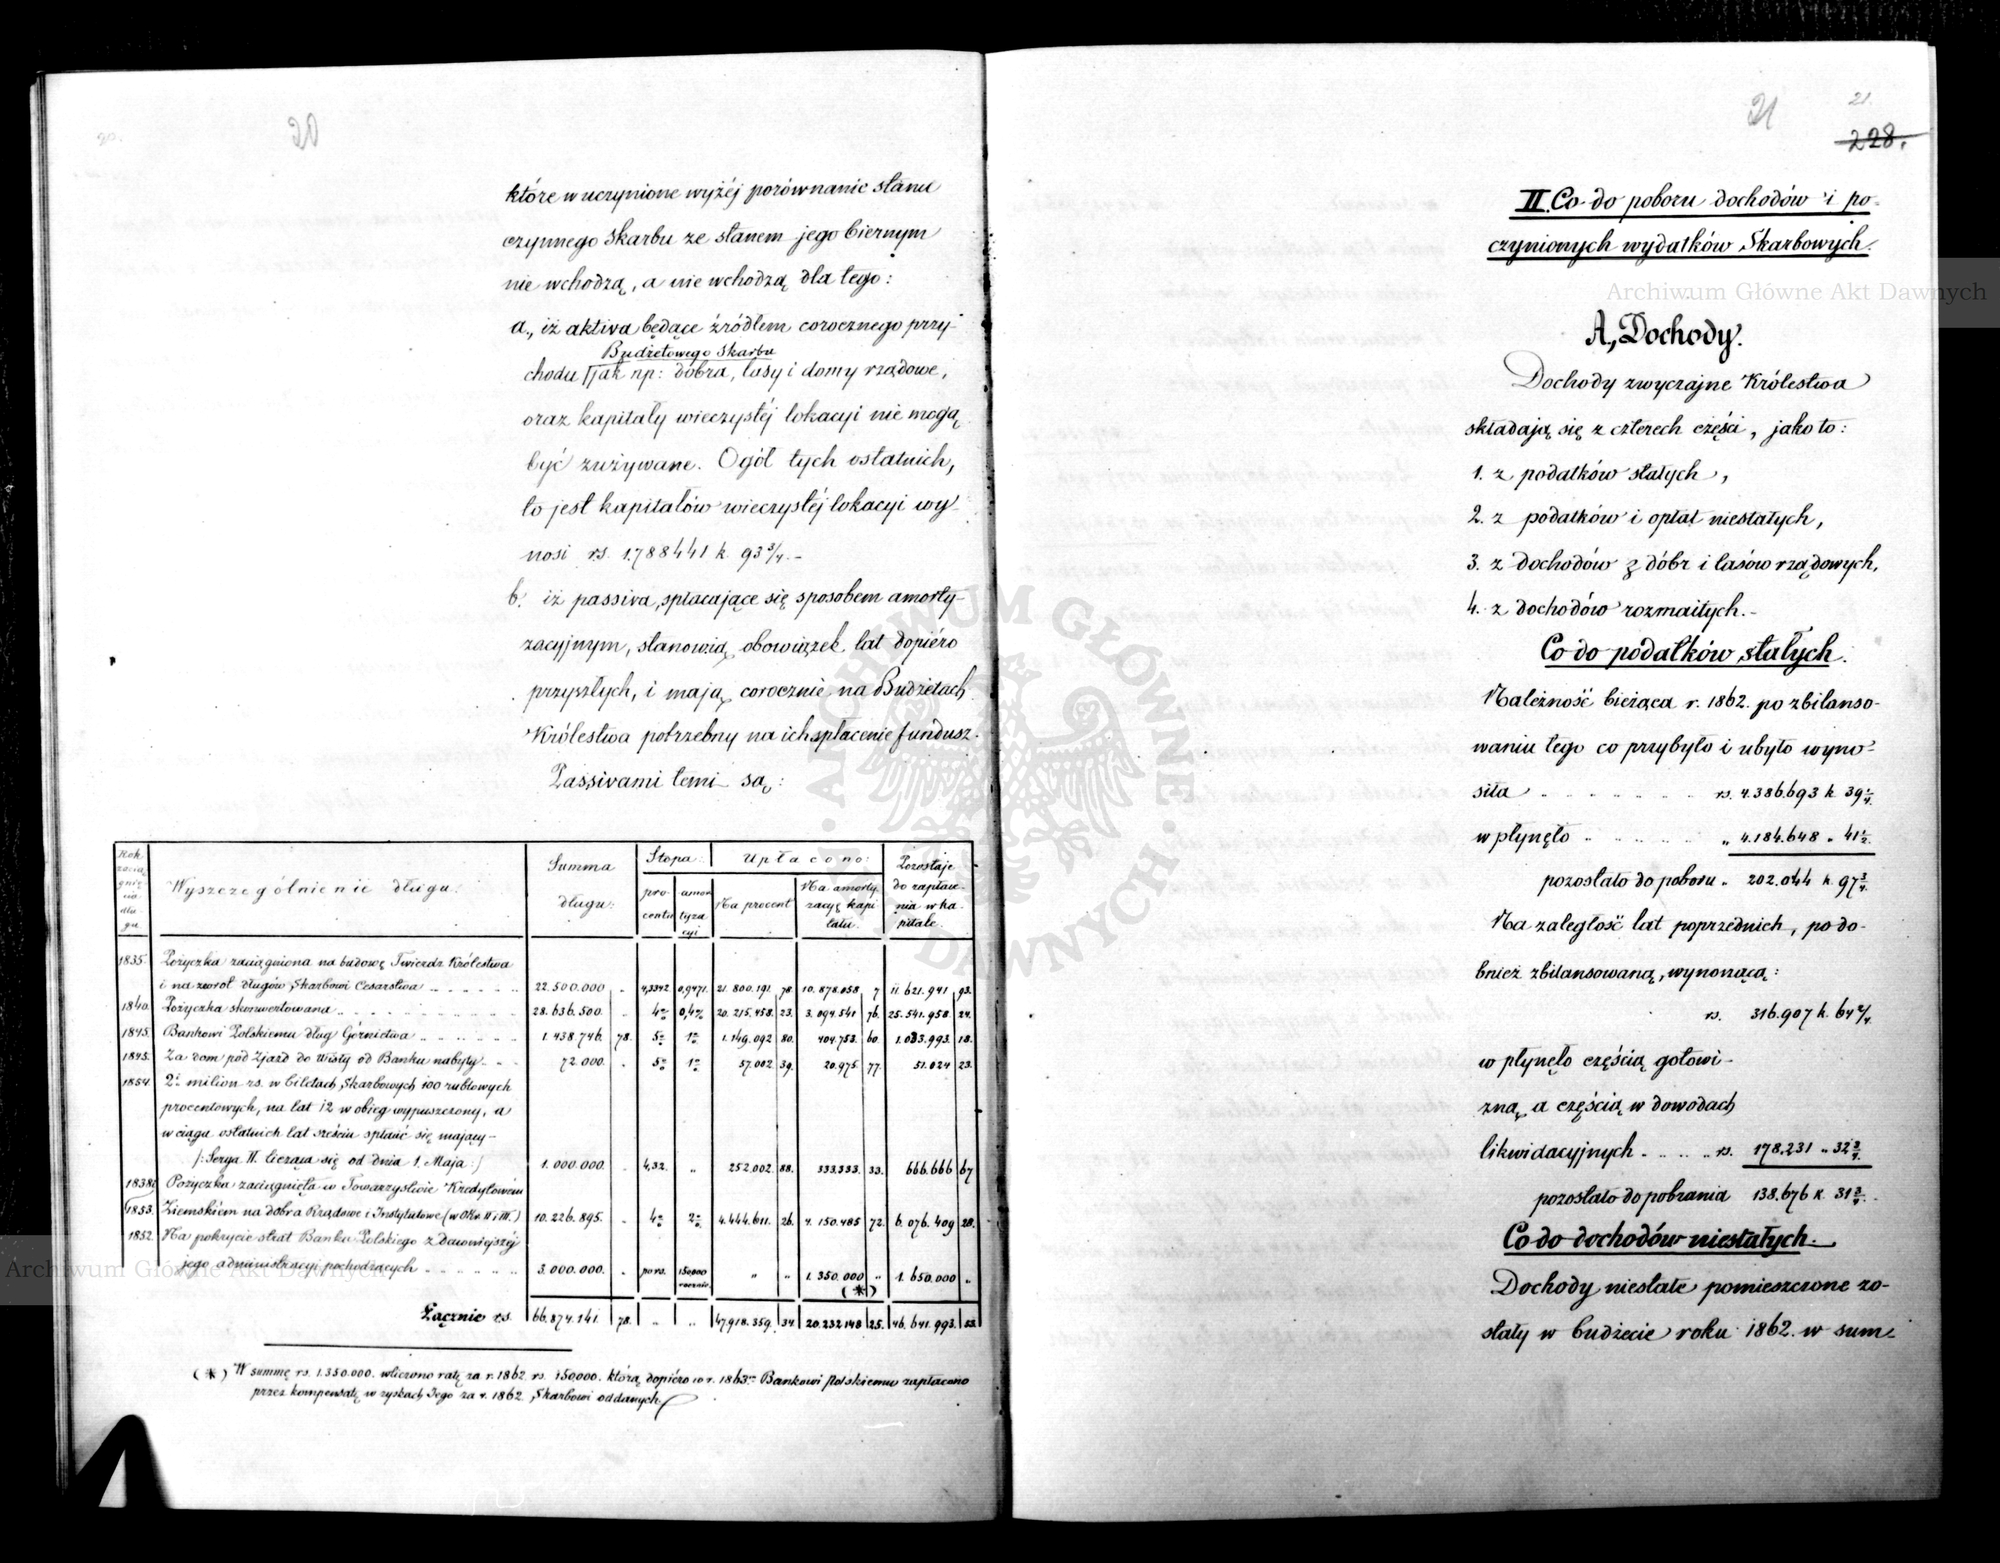 20.
20
które w uczynione wyżéj porównanie stanu
czynnego Skarbu ze stanem jego biernym
nie wchodzą, a nie wchodzą dla tego:
a., iż aktiva będące źródłem corocznego przy-
Budżetowego Skarbu
chodu jak np: dobra, lasy i domy rządowe,
oraz kapitały wieczystéj lokacyi nie mogą
być zużywane. Ogół tych ostatnich,
to jest kapitałów wieczystéj lokacyi wy-
nosi rs. 1.788441 k. 93 3/4.-
b. iż passiva, spłacające się sposobem amorty-
zacyjnym, stanowią obowiązek lat dopiéro
przyszłych, i mają corocznie na Budżetach
Królestwa potrzebny na ich spłacenie fundusz.
Passivami temi są:
Rok zacią-gnię-nia dłu-gu. | Wyszczególnienie długu: | Summa długu: | Stopa: procentu | amortyzacyi | Upłacono: Na procent | Na amorty-zacyę kapi-tału. | Pozostaje do zapłace-nia w ka-pitale.
1835. Pożyczka zaciągniona na budowę Twierdz Królestwa
i na zwrot długów Skarbowi Cesarstwa 22.500.000 „ 4,3342 0,9471. 21.800.191. 78. 10.878.058 7 11.621.941 93.
1840. Pożyczka skonwertowana 28.636.500. „ 4% 0,4% 20.215.458. 23. 3.094.541 76. 25.541.958. 24.
1845. Bankowi Polskiemu dług Górnictwa 1.438.746. 78. 5% 1% 1.149.092 80. 404.753. 60. 1.033.993. 18.
1845. Za dom pod Zjazd do Wisły od Banku nabyty 72.000. „ 5% 1% 57.002. 39. 20.975. 77. 51.024 23.
1854. 2 milion rs. w biletach Skarbowych 100 rublowych
procentowych, na lat 12 w obieg wypuszczony, a
w ciągu ostatnich lat sześciu spłacić się mający-
/: Serya II. licząca się od dnia 1. Maja :/ 1.000.000. „ 4,32. „ 252.002. 88. 333.333. 33. 666.666 67
1838/ Pożyczka zaciągnięta w Towarzystwie Kredytowém
1853. Ziemskiém na dobra Rządowe i Instytutowe (w Okr. II i III.) 10.226.895. „ 4% 2% 4.444.611. 26. 4.150.485 72. 6.076.409 28.
1852. Na pokrycie strat Banku Polskiego z dawniejszéj
jego administracyi pochodzących 3.000.000. „ pozs. 150000 rocznie. „ „ 1.350.000 „ 1.650.000 „
(*)
Łącznie rs. 66.874.141. 78. „ „ 47.918.359. 34. 20.232.148 25. 46.641.993. 53.
(*) W summę rs. 1.350.000. wliczono ratę za r. 1862. rs. 150000. którą dopiéro w r. 1863 Bankowi Polskiemu zapłacono
przez kompensatę w zyskach Jego za r. 1862. Skarbowi oddanych.
21
21.
228.
II. Co do poboru dochodów i po-
czynionych wydatków Skarbowych.
A, Dochody.
Dochody zwyczajne Królestwa
składają się z czterech części, jako to:
1. z podatków stałych,
2. z podatków i opłat niestałych,
3. z dochodów z dóbr i lasów rządowych,
4. z dochodów rozmaitych.-
Co do podatków stałych.
Należność bieżąca r. 1862. po zbilanso-
waniu tego co przybyło i ubyło wyno-
siła rs. 4.386.693 k 39 1/4.
wpłynęło „ 4.184.648 „ 41 1/2.
pozostało do poboru „ 202.044 k. 97 3/4.
Na zaległość lat poprzednich, podo-
bnież zbilansowaną, wynoszącą:
rs. 316.907 k. 64 2/4.
wpłynęło częścią gotowi-
zną, a częścią w dowodach
likwidacyjnych rs. 178.231 „ 32 3/4.
pozostało do pobrania 138.676 k. 31 3/4.
Co do dochodów niestałych.
Dochody niestałe pomieszczone zo-
stały w budżecie roku 1862. w sum-
Archiwum Główne Akt Dawnych
Archiwum Główne Akt Dawnych
ARCHIWUM GŁÓWNE AKT DAWNYCH